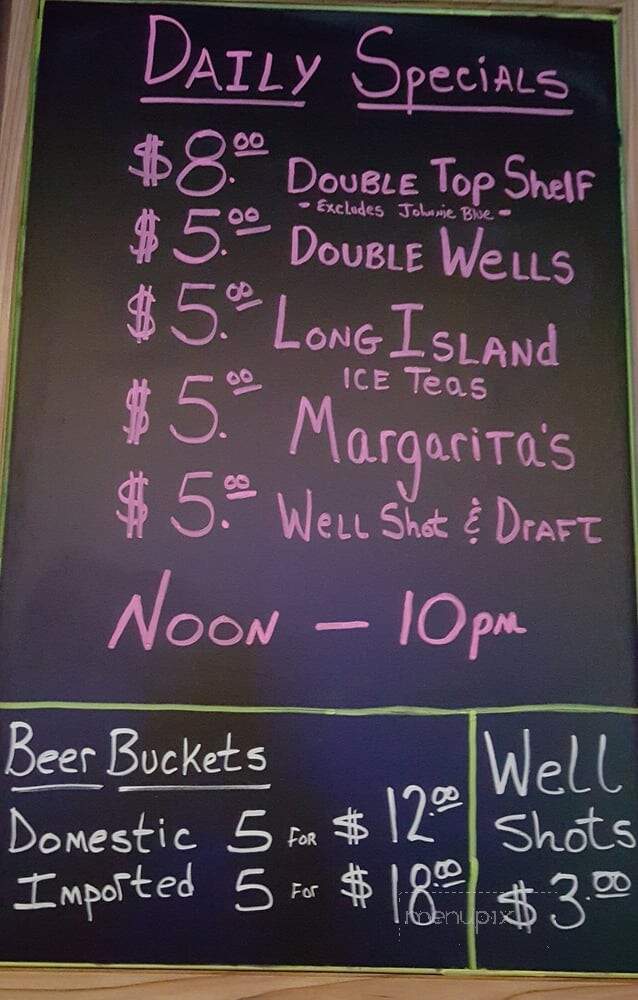 DAILY SpeciALS
$8.00 DOUBLE Top Shelf
- Excludes Johnnie Blue -
$5.00 DOUBLE WeLLS
$5.00 LONG ISLANd
ICE Teas
$5.00 Margarita's
$5.00 Well Shot & DrAFT
NOON — 10pm
Beer Buckets
Domestic 5 FOR $12.00
Imported 5 For $18.00
Well
Shots
$3.00
menupix